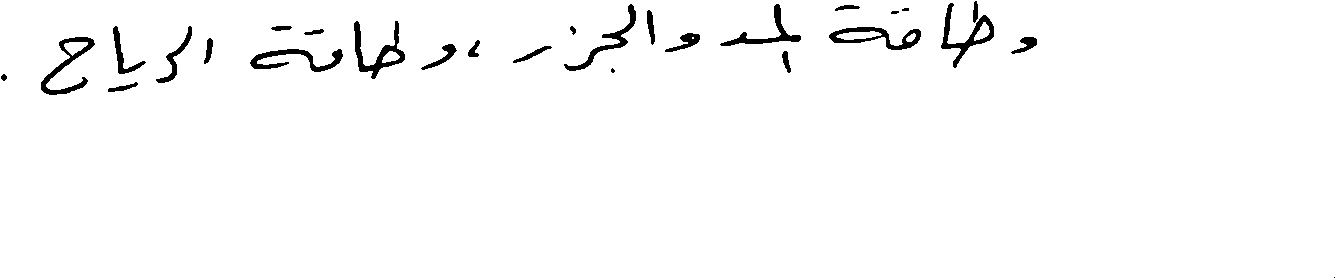 وطاقة المد والجزر ، وطاقة الرياح .